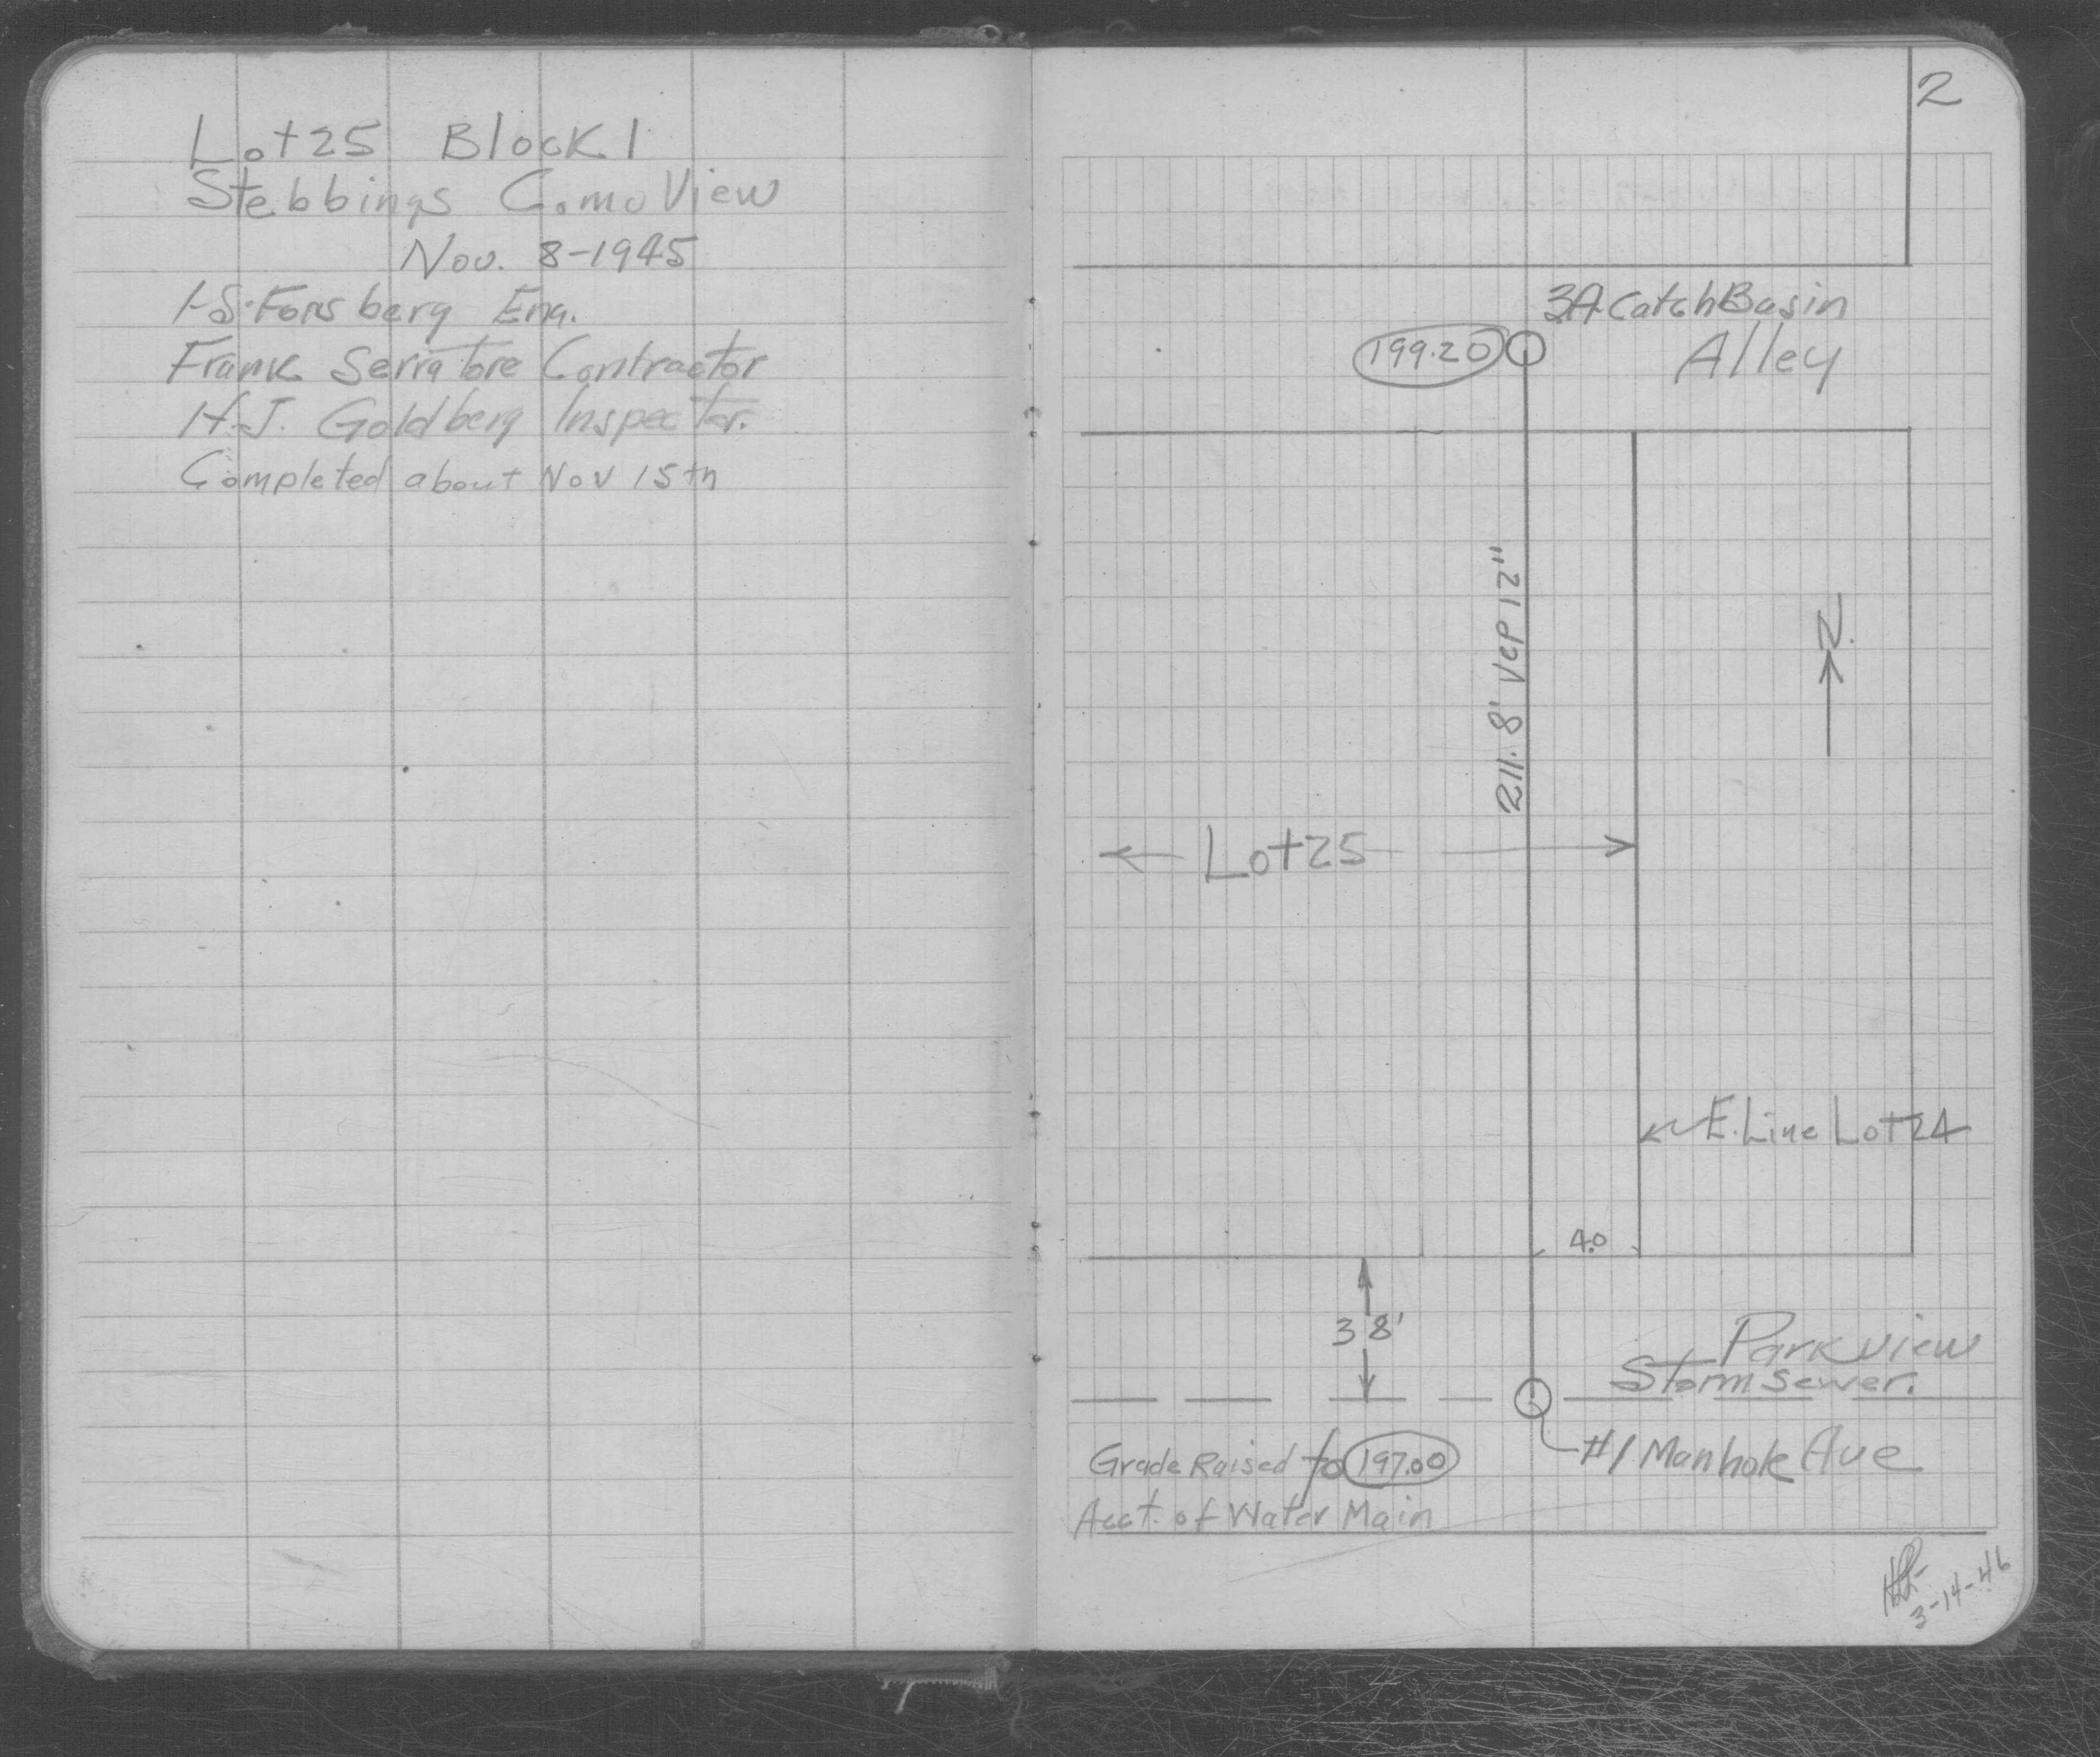 Lot 25 Block 1
Stebbings Como View
Nov. 8-1945
Forsberg Eng.
Frank Serratore Contractor
H.J. Goldberg Inspector.
Completed about Nov 15th
2
3A Catch Basin
199.20
Alley
211.8' VCP 12"
N.
Lot 25
E. Line Lot 24
4.0
38'
Parkview
Storm Sewer.
#1 Manhole Ave
Grade Raised to 197.00
Acct. of Water Main
3-14-46